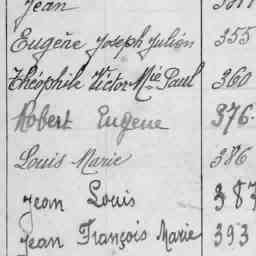 Jean
Eugène Joseph Julien 355
Théophile Victor Mie Paul 360
Robert Eugene 376.
Louis Marie 386
Jean Louis 387
Jean François Marie 393